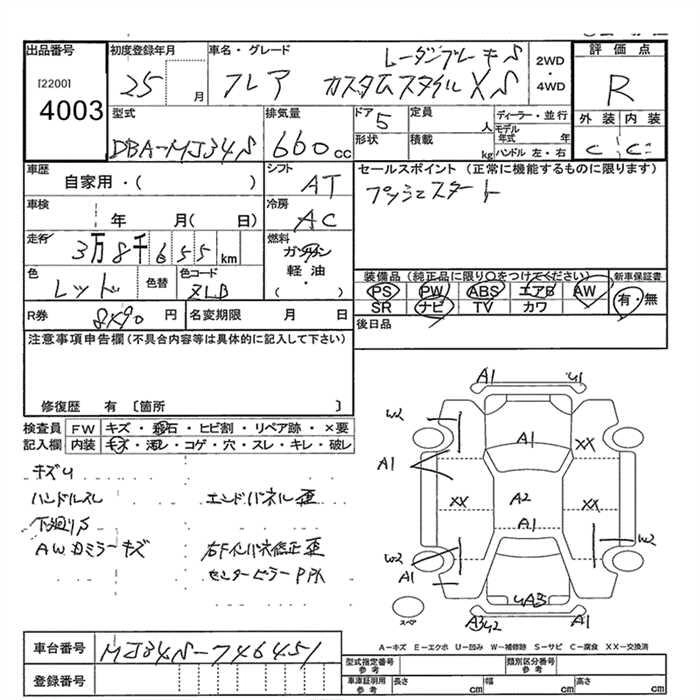 出品番号
[2200]
4003
初度登録年月
25 月
車名・グレード
レーダーブレーキS
フレア カスタムスタイル XS
2WD
・
4WD
評価点
R
外装 内装
C C
型式
DBA-MJ34S
排気量
660cc
ドア 5
形状
定員 人
積載 kg
ディーラー・並行
モデル年式 年
ハンドル 左・右
車歴
自家用・( )
シフト
AT
セールスポイント (正常に機能するものに限ります)
プッシュスタート
車検
年 月( 日)
冷房
AC
走行
3万8千655km
燃料
ガソリン
軽油
( ・ )
色
レッド
色替
色コード
装備品 (純正品に限り○をつけてください)
PS PW ABS エアB AW
SR ナビ TV カワ
新車保証書
有・無
R券
8490円
名変期限 月 日
後日品
注意事項申告欄(不具合内容等は具体的に記入して下さい)
修復歴 有 〔箇所 〕
検査員記入欄
FW キズ・飛石・ヒビ割・リペア跡・×要
内装 キズ・汚レ・コゲ・穴・スレ・キレ・破レ
キズU
ハンドルスレ エンドパネル歪
下廻りS
AWドミラーキズ 右Fインパネ修正歪
センターピラーPハ
A1 U1
W2 A1 XX
A1
XX A2 XX
A1
W2 W2
A1
UA3
A3U2 A1
スペア
A-キズ E-エクボ U-凹み W-補修跡 S-サビ C-腐食 XX-交換済
車台番号
MJ34S-746451
登録番号
型式指定番号 参考
類別区分番号 参考
車庫証明用 参考
長さ cm 幅 cm 高さ cm